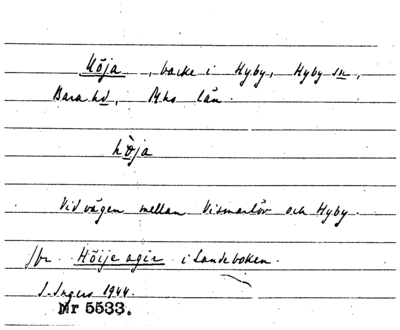 Höja, backe i Hyby, Hyby sn,
Bara hd, M.hs län.
hö̀ja
Vid vägen mellan Vismarlöv och Hyby.
Jfr. Höije agir i Landeboken.
I. Ingers 1944.
Nr 5533.